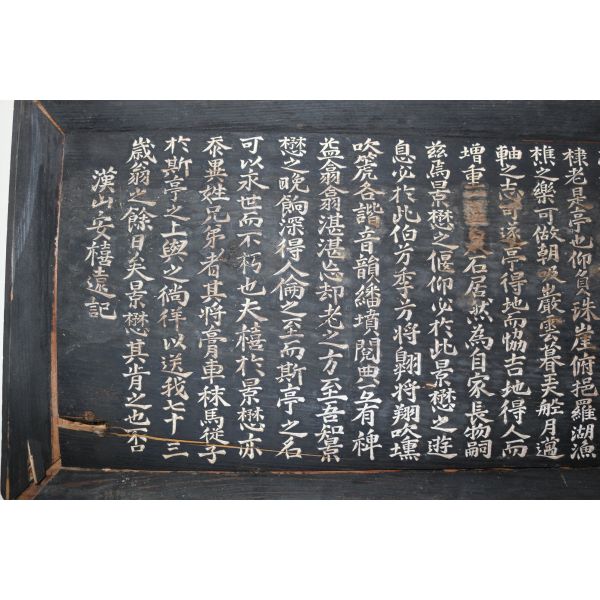 棣老是亭也仰負珠崖俯挹羅湖漁
樵之樂可做朝吸巖雲暮夫舩月薖
軸之志可遂亭得地而協吉地得人而
增重石居然為自家長物嗣
茲焉景懋之偃仰必於此景懋之遊
息必於此伯方季方將翺將翔吹壎
吹箎各諧音韻繙墳閱典互有裨
益翁翁湛湛忘却老之方至吾知景
懋之晚餉深得人倫之至而斯亭之名
可以永世而不朽也夫禧於景懋亦
忝異姓兄弟者其將膏車秣馬從子
於斯亭之上與之徜徉以送我七十三
歲翁之餘日矣景懋其肯之也否
漢山安禧遠記